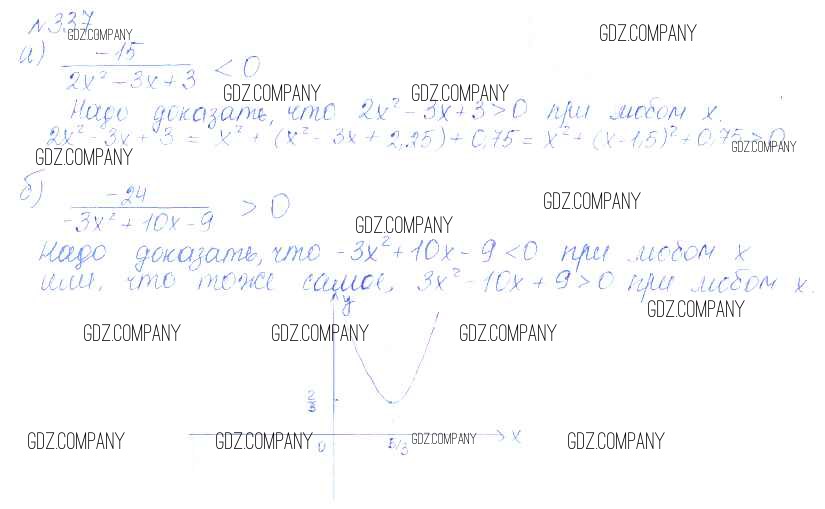 № 337
GDZ.COMPANY GDZ.COMPANY
а) -15 / (2x² - 3x + 3) < 0
GDZ.COMPANY GDZ.COMPANY
Надо доказать, что 2x² - 3x + 3 > 0 при любом x.
2x² - 3x + 3 = x² + (x² - 3x + 2,25) + 0,75 = x² + (x - 1,5)² + 0,75 > 0
GDZ.COMPANY GDZ.COMPANY
б) -24 / (-3x² + 10x - 9) > 0
GDZ.COMPANY
GDZ.COMPANY
Надо доказать, что -3x² + 10x - 9 < 0 при любом x
или, что тоже самое, 3x² - 10x + 9 > 0 при любом x.
y GDZ.COMPANY
GDZ.COMPANY GDZ.COMPANY GDZ.COMPANY
GDZ.COMPANY GDZ.COMPANY GDZ.COMPANY x GDZ.COMPANY
0 5/3